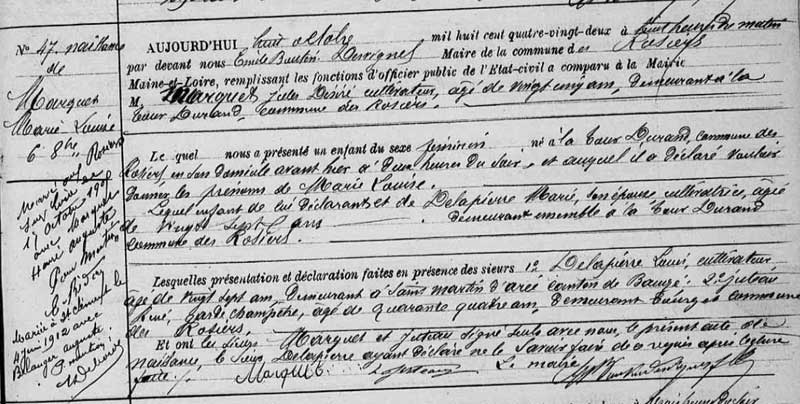 N° 47 naissance
de
Marquet
Marie Louise
6 8bre
Rosiers
Mariée aux Rosiers
sur Loire le
17 octobre
avec Marquet
Henri Auguste
Pour mention
Mariée à St Clément le
4 juin 1912 avec
Bélanger Auguste.
P. mention
AUJOURD'HUI huit octobre mil huit cent quatre-vingt-deux à heures du matin
par devant nous Emile Bastien Maire de la commune des Rosiers
Maine-et-Loire, remplissant les fonctions d'officier public de l'Etat-civil a comparu à la Mairie
M. Marquet Jules Désiré cultivateur, âgé de vingt cinq ans, demeurant à la
Cour Durand, commune des Rosiers.
Le quel nous a présenté un enfant du sexe féminin né à la Cour Durand, commune des
Rosiers en son domicile avant hier à deux heures du soir, et auquel il a déclaré vouloir
donner les prénoms de Marie Louise.
Lequel enfant de lui déclarant et de Delapierre Marie, son épouse cultivatrice, âgée
de vingt sept ans demeurant ensemble à la Cour Durand
commune des Rosiers.
Lesquelles présentation et déclaration faites en présence des sieurs 1° Delapierre Louis, cultivateur
âgé de vingt sept ans, demeurant à Saint Martin d'arcé canton de Baugé; 2° Juteau
René, garde champêtre, âgé de quarante quatre ans, demeurant commune
des Rosiers
Et ont les sieurs Marquet et Juteau signé seuls avec nous le présent acte de
naissance, le sieur Delapierre ayant déclaré ne le savoir faire de ce requis après lecture
faite. Marquet Juteau Le maire